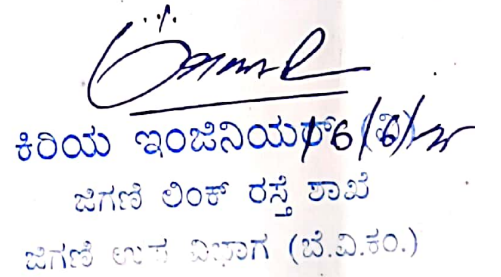 ಕಿರಿಯ ಇಂಜಿನಿಯರ್ (ವಿ)
16/6/
ಜಿಗಣಿ ಲಿಂಕ್ ರಸ್ತೆ ಶಾಖೆ
ಜಿಗಣಿ ಉಪ ವಿಭಾಗ (ಬೆ.ವಿ.ಕಂ.)